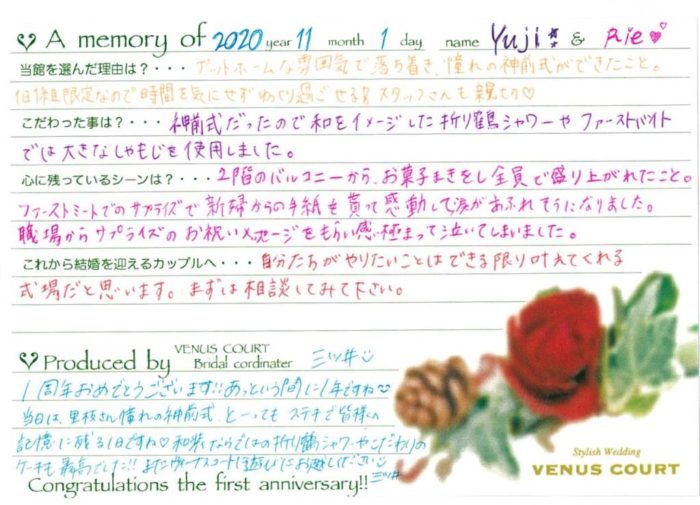 A memory of 2020 year 11 month 1 day name Yuji & Rie
当館を選んだ理由は？・・・アットホームな雰囲気で落ち着き、憧れの神前式ができたこと。
1日1組限定なので時間を気にせずゆっくり過ごせる スタッフさんも親切
こだわった事は？・・・神前式だったので和をイメージした折り鶴シャワーや ファーストバイト
では大きなしゃもじを使用しました。
心に残っているシーンは？・・・2階のバルコニーから、お菓子まきをし全員で盛り上がれたこと。
ファーストミートでのサプライズで新婦からの手紙を貰って感動して涙があふれそうになりました。
職場からサプライズのお祝いメッセージをもらい感極まって泣いてしまいました。
これから結婚を迎えるカップルへ・・・自分たちがやりたいことはできる限り叶えてくれる
式場だと思います。まずは相談してみて下さい。
Produced by VENUS COURT Bridal cordinater 三ツ井
1周年おめでとうございます!!あっという間に1年ですね
当日は、里枝さん憧れの神前式 とーっても ステキで皆様の
記憶に残る1日ですね 和装ならではの折り鶴シャワーやこだわりの
ケーキも最高でした!! またヴィーナスコートに遊びにお越しください 三ツ井
Congratulations the first anniversary!!
Stylish Wedding
VENUS COURT